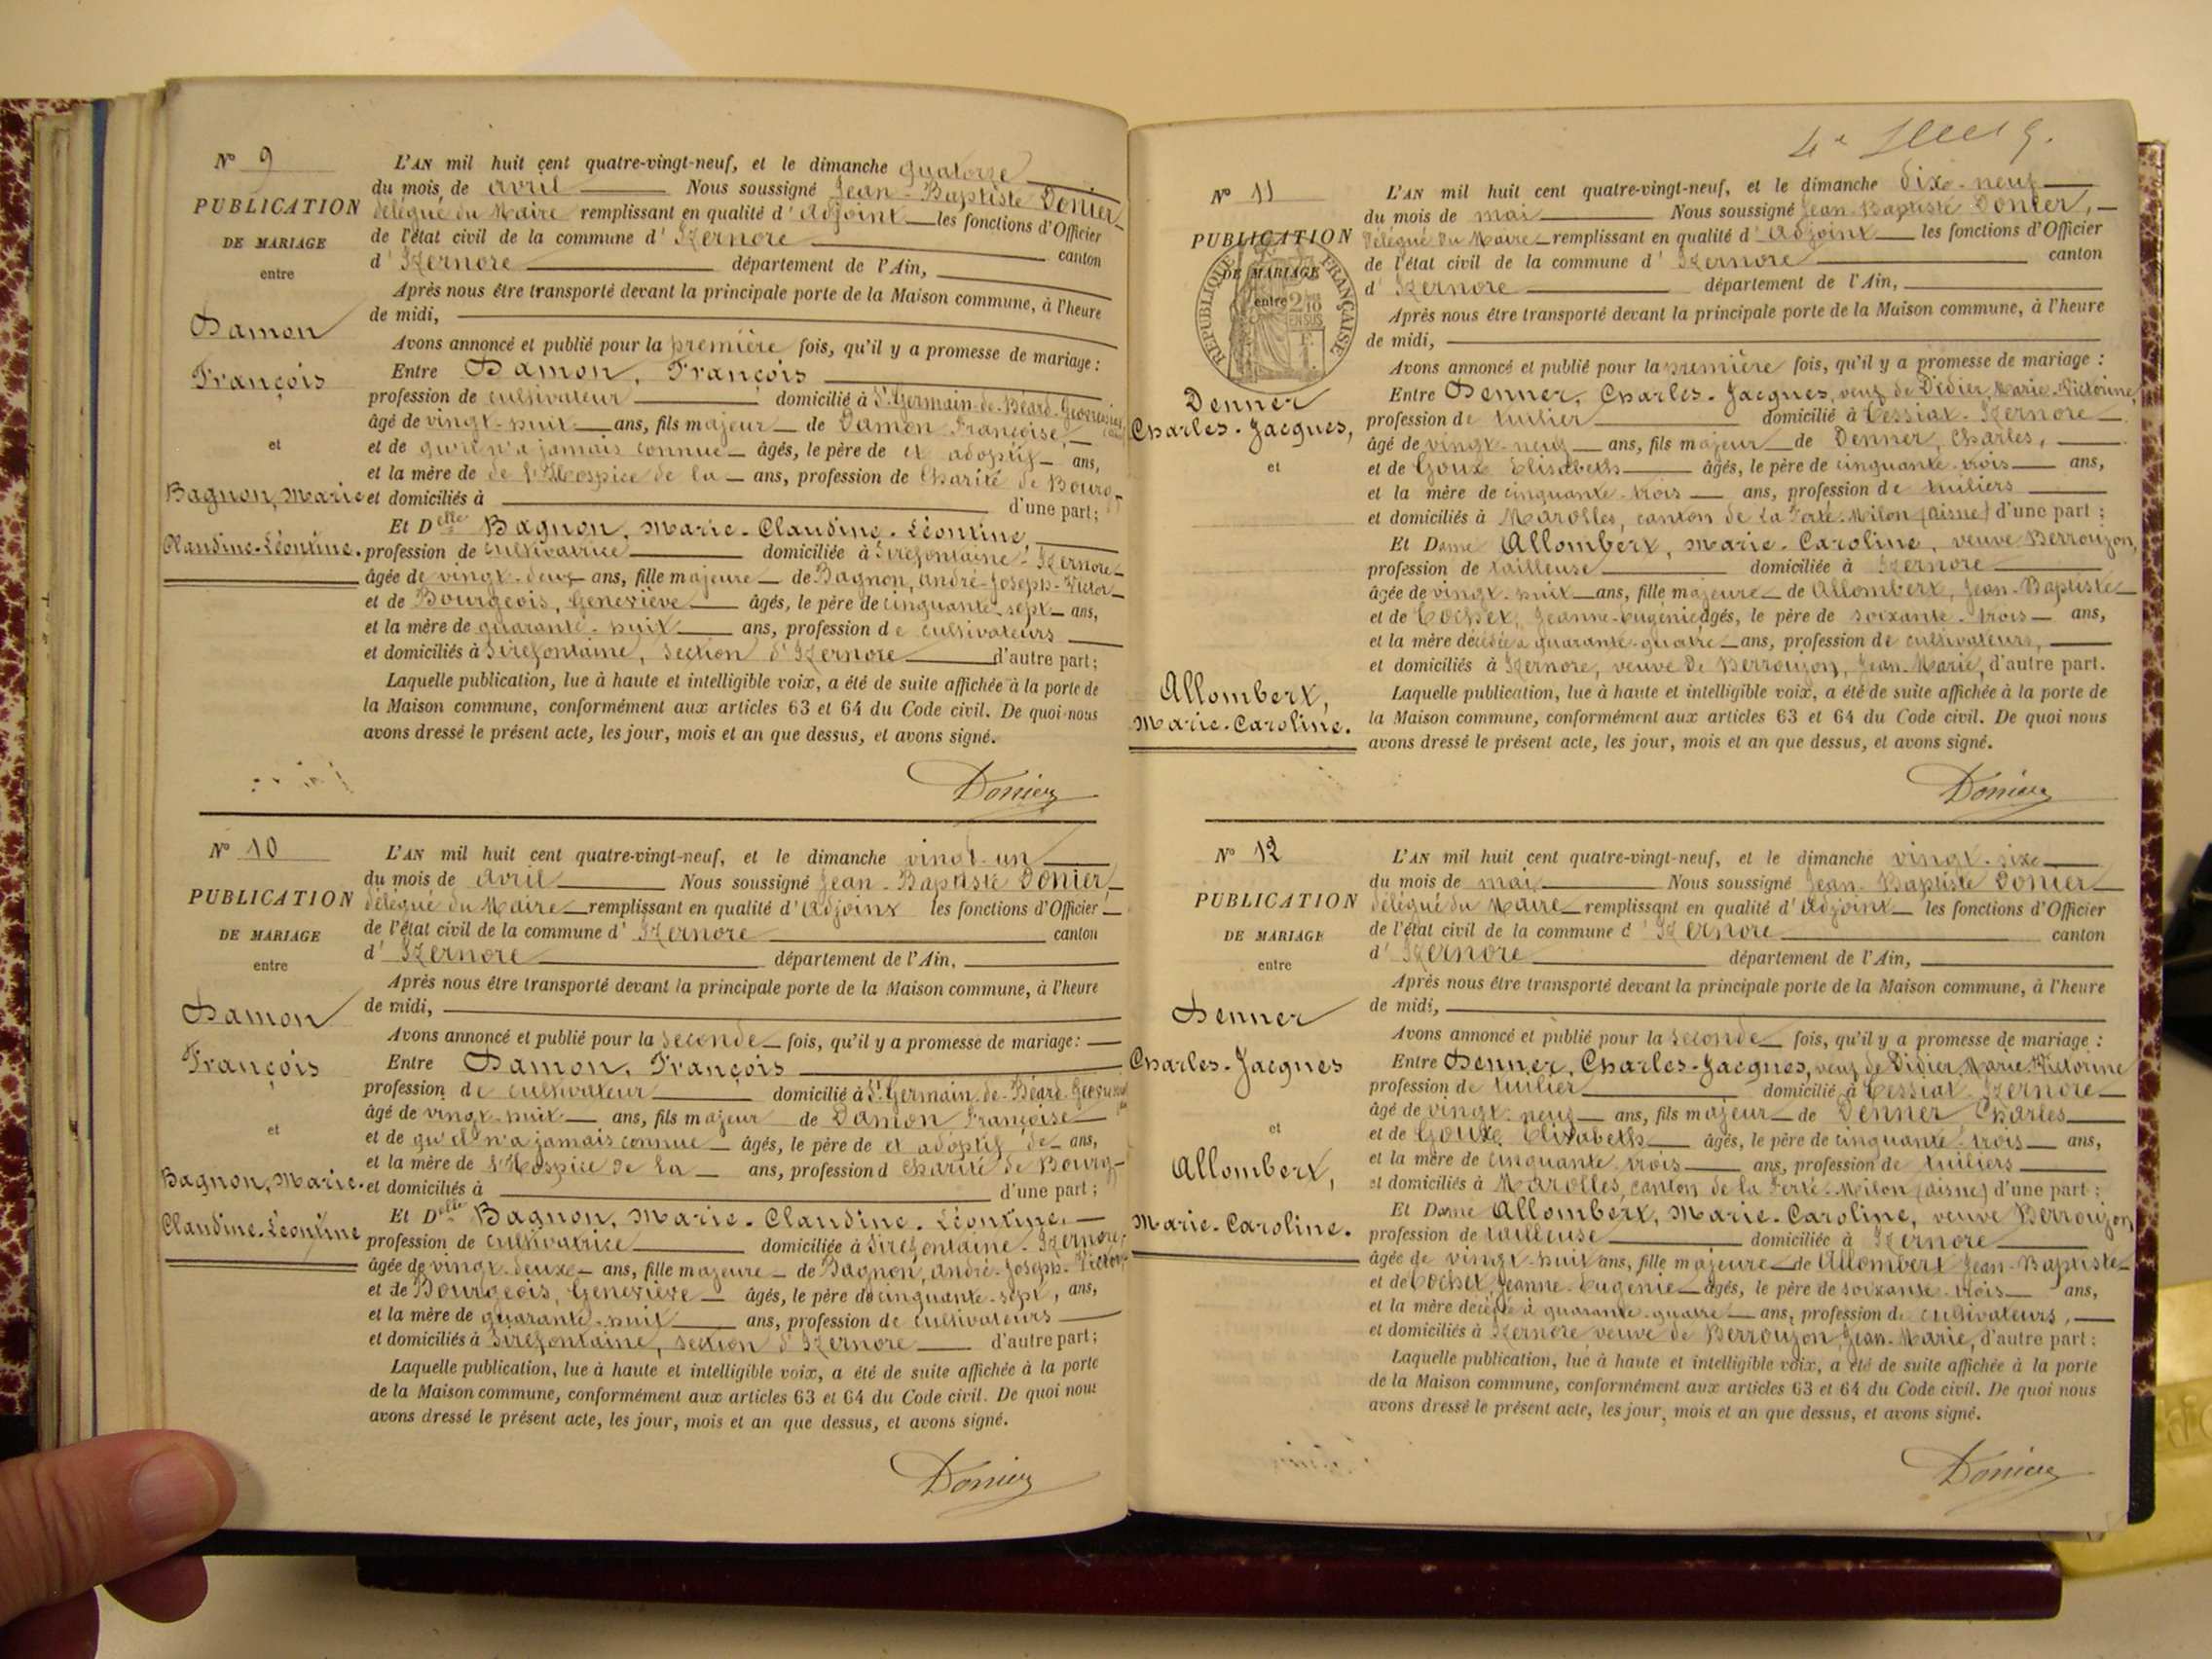 N° 9
PUBLICATION
DE MARIAGE
entre
Damon
François
et
Bagnon, Marie
Claudine-Léontine.
L'AN mil huit cent quatre-vingt-neuf, et le dimanche quatorze
du mois de avril Nous soussigné Jean-Baptiste Donier
délégué du Maire remplissant en qualité d'Adjoint les fonctions d'Officier
de l'état civil de la commune d'Izernore canton
d'Izernore département de l'Ain,
Après nous être transporté devant la principale porte de la Maison commune, à l'heure
de midi,
Avons annoncé et publié pour la première fois, qu'il y a promesse de mariage :
Entre Damon, François
profession de cultivateur domicilié à St Germain-de-Béard-
âgé de vingt-huit ans, fils majeur de Damon Françoise,
et de qu'il n'a jamais connue âgés, le père de et adoptif ans,
et la mère de de l'Hospice de la ans, profession de Charité de Bourg
et domiciliés à d'une part ;
Et Delle Bagnon, Marie-Claudine-Léontine
profession de cultivatrice domiciliée à Sirefontaine-Izernore
âgée de vingt-deux ans, fille majeure de Bagnon, André-Joseph-Victor
et de Bourgeois, Geneviève âgés, le père de cinquante-sept ans,
et la mère de quarante-huit ans, profession de cultivateurs
et domiciliés à Sirefontaine, section d'Izernore d'autre part ;
Laquelle publication, lue à haute et intelligible voix, a été de suite affichée à la porte de
la Maison commune, conformément aux articles 63 et 64 du Code civil. De quoi nous
avons dressé le présent acte, les jour, mois et an que dessus, et avons signé.
Donier
N° 10
PUBLICATION
DE MARIAGE
entre
Damon
François
et
Bagnon, Marie-
Claudine-Léontine
L'AN mil huit cent quatre-vingt-neuf, et le dimanche vingt-un
du mois de avril Nous soussigné Jean-Baptiste Donier
délégué du Maire remplissant en qualité d'Adjoint les fonctions d'Officier
de l'état civil de la commune d'Izernore canton
d'Izernore département de l'Ain,
Après nous être transporté devant la principale porte de la Maison commune, à l'heure
de midi,
Avons annoncé et publié pour la seconde fois, qu'il y a promesse de mariage :
Entre Damon, François
profession de cultivateur domicilié à St Germain-de-Béard-
âgé de vingt-huit ans, fils majeur de Damon Françoise
et de qu'il n'a jamais connue âgés, le père de et adoptif de ans,
et la mère de l'Hospice de la ans, profession d Charité de Bourg
et domiciliés à d'une part ;
Et Delle Bagnon, Marie-Claudine-Léontine,
profession de cultivatrice domiciliée à Sirefontaine-Izernore
âgée de vingt-deux ans, fille majeure de Bagnon, André-Joseph-Victor
et de Bourgeois, Geneviève âgés, le père de cinquante-sept, ans,
et la mère de quarante-huit ans, profession de cultivateurs
et domiciliés à Sirefontaine, section d'Izernore d'autre part ;
Laquelle publication, lue à haute et intelligible voix, a été de suite affichée à la porte
de la Maison commune, conformément aux articles 63 et 64 du Code civil. De quoi nous
avons dressé le présent acte, les jour, mois et an que dessus, et avons signé.
Donier
N° 11
PUBLICATION
DE MARIAGE
entre
RÉPUBLIQUE FRANÇAISE
2/10
EN SUS
Denner
Charles-Jacques,
et
Allombert,
Marie-Caroline.
L'AN mil huit cent quatre-vingt-neuf, et le dimanche dix-neuf
du mois de mai Nous soussigné Jean-Baptiste Donier,
délégué du Maire remplissant en qualité d'Adjoint les fonctions d'Officier
de l'état civil de la commune d'Izernore canton
d'Izernore département de l'Ain,
Après nous être transporté devant la principale porte de la Maison commune, à l'heure
de midi,
Avons annoncé et publié pour la première fois, qu'il y a promesse de mariage :
Entre Denner, Charles-Jacques, veuf de Didier, Marie-Victorine,
profession de tuilier domicilié à Tessiat-Izernore
âgé de vingt-neuf ans, fils majeur de Denner, Charles,
et de Goux Elisabeth âgés, le père de cinquante-trois ans,
et la mère de cinquante-trois ans, profession de tuiliers
et domiciliés à Marolles, canton de La Ferté-Milon (Aisne) d'une part ;
Et Dame Allombert, Marie-Caroline, veuve Berrouzon,
profession de tailleuse domiciliée à Izernore
âgée de vingt-huit ans, fille majeure de Allombert, Jean-Baptiste
et de Cochet, Jeanne-Eugénie âgés, le père de soixante-trois ans,
et la mère décédée à quarante-quatre ans, profession de cultivateurs,
et domiciliés à Izernore, veuve de Berrouzon, Jean-Marie, d'autre part.
Laquelle publication, lue à haute et intelligible voix, a été de suite affichée à la porte de
la Maison commune, conformément aux articles 63 et 64 du Code civil. De quoi nous
avons dressé le présent acte, les jour, mois et an que dessus, et avons signé.
Donier
N° 12
PUBLICATION
DE MARIAGE
entre
Denner
Charles-Jacques
et
Allombert,
Marie-Caroline.
L'AN mil huit cent quatre-vingt-neuf, et le dimanche vingt-six
du mois de mai Nous soussigné Jean-Baptiste Donier
délégué du Maire remplissant en qualité d'Adjoint les fonctions d'Officier
de l'état civil de la commune d'Izernore canton
d'Izernore département de l'Ain,
Après nous être transporté devant la principale porte de la Maison commune, à l'heure
de midi,
Avons annoncé et publié pour la seconde fois, qu'il y a promesse de mariage :
Entre Denner, Charles-Jacques, veuf de Didier, Marie-Victorine
profession de tuilier domicilié à Tessiat-Izernore
âgé de vingt-neuf ans, fils majeur de Denner Charles
et de Goux Elisabeth âgés, le père de cinquante-trois ans,
et la mère de cinquante-trois ans, profession de tuiliers
et domiciliés à Marolles, canton de la Ferté-Milon (Aisne) d'une part ;
Et Dame Allombert, Marie-Caroline, veuve Berrouzon
profession de tailleuse domiciliée à Izernore
âgée de vingt-huit ans, fille majeure de Allombert Jean-Baptiste
et de Cochet, Jeanne-Eugénie âgés, le père de soixante-trois ans,
et la mère décédée à quarante-quatre ans, profession de cultivateurs,
et domiciliés à Izernore veuve de Berrouzon, Jean-Marie, d'autre part ;
Laquelle publication, lue à haute et intelligible voix, a été de suite affichée à la porte
de la Maison commune, conformément aux articles 63 et 64 du Code civil. De quoi nous
avons dressé le présent acte, les jour, mois et an que dessus, et avons signé.
Donier